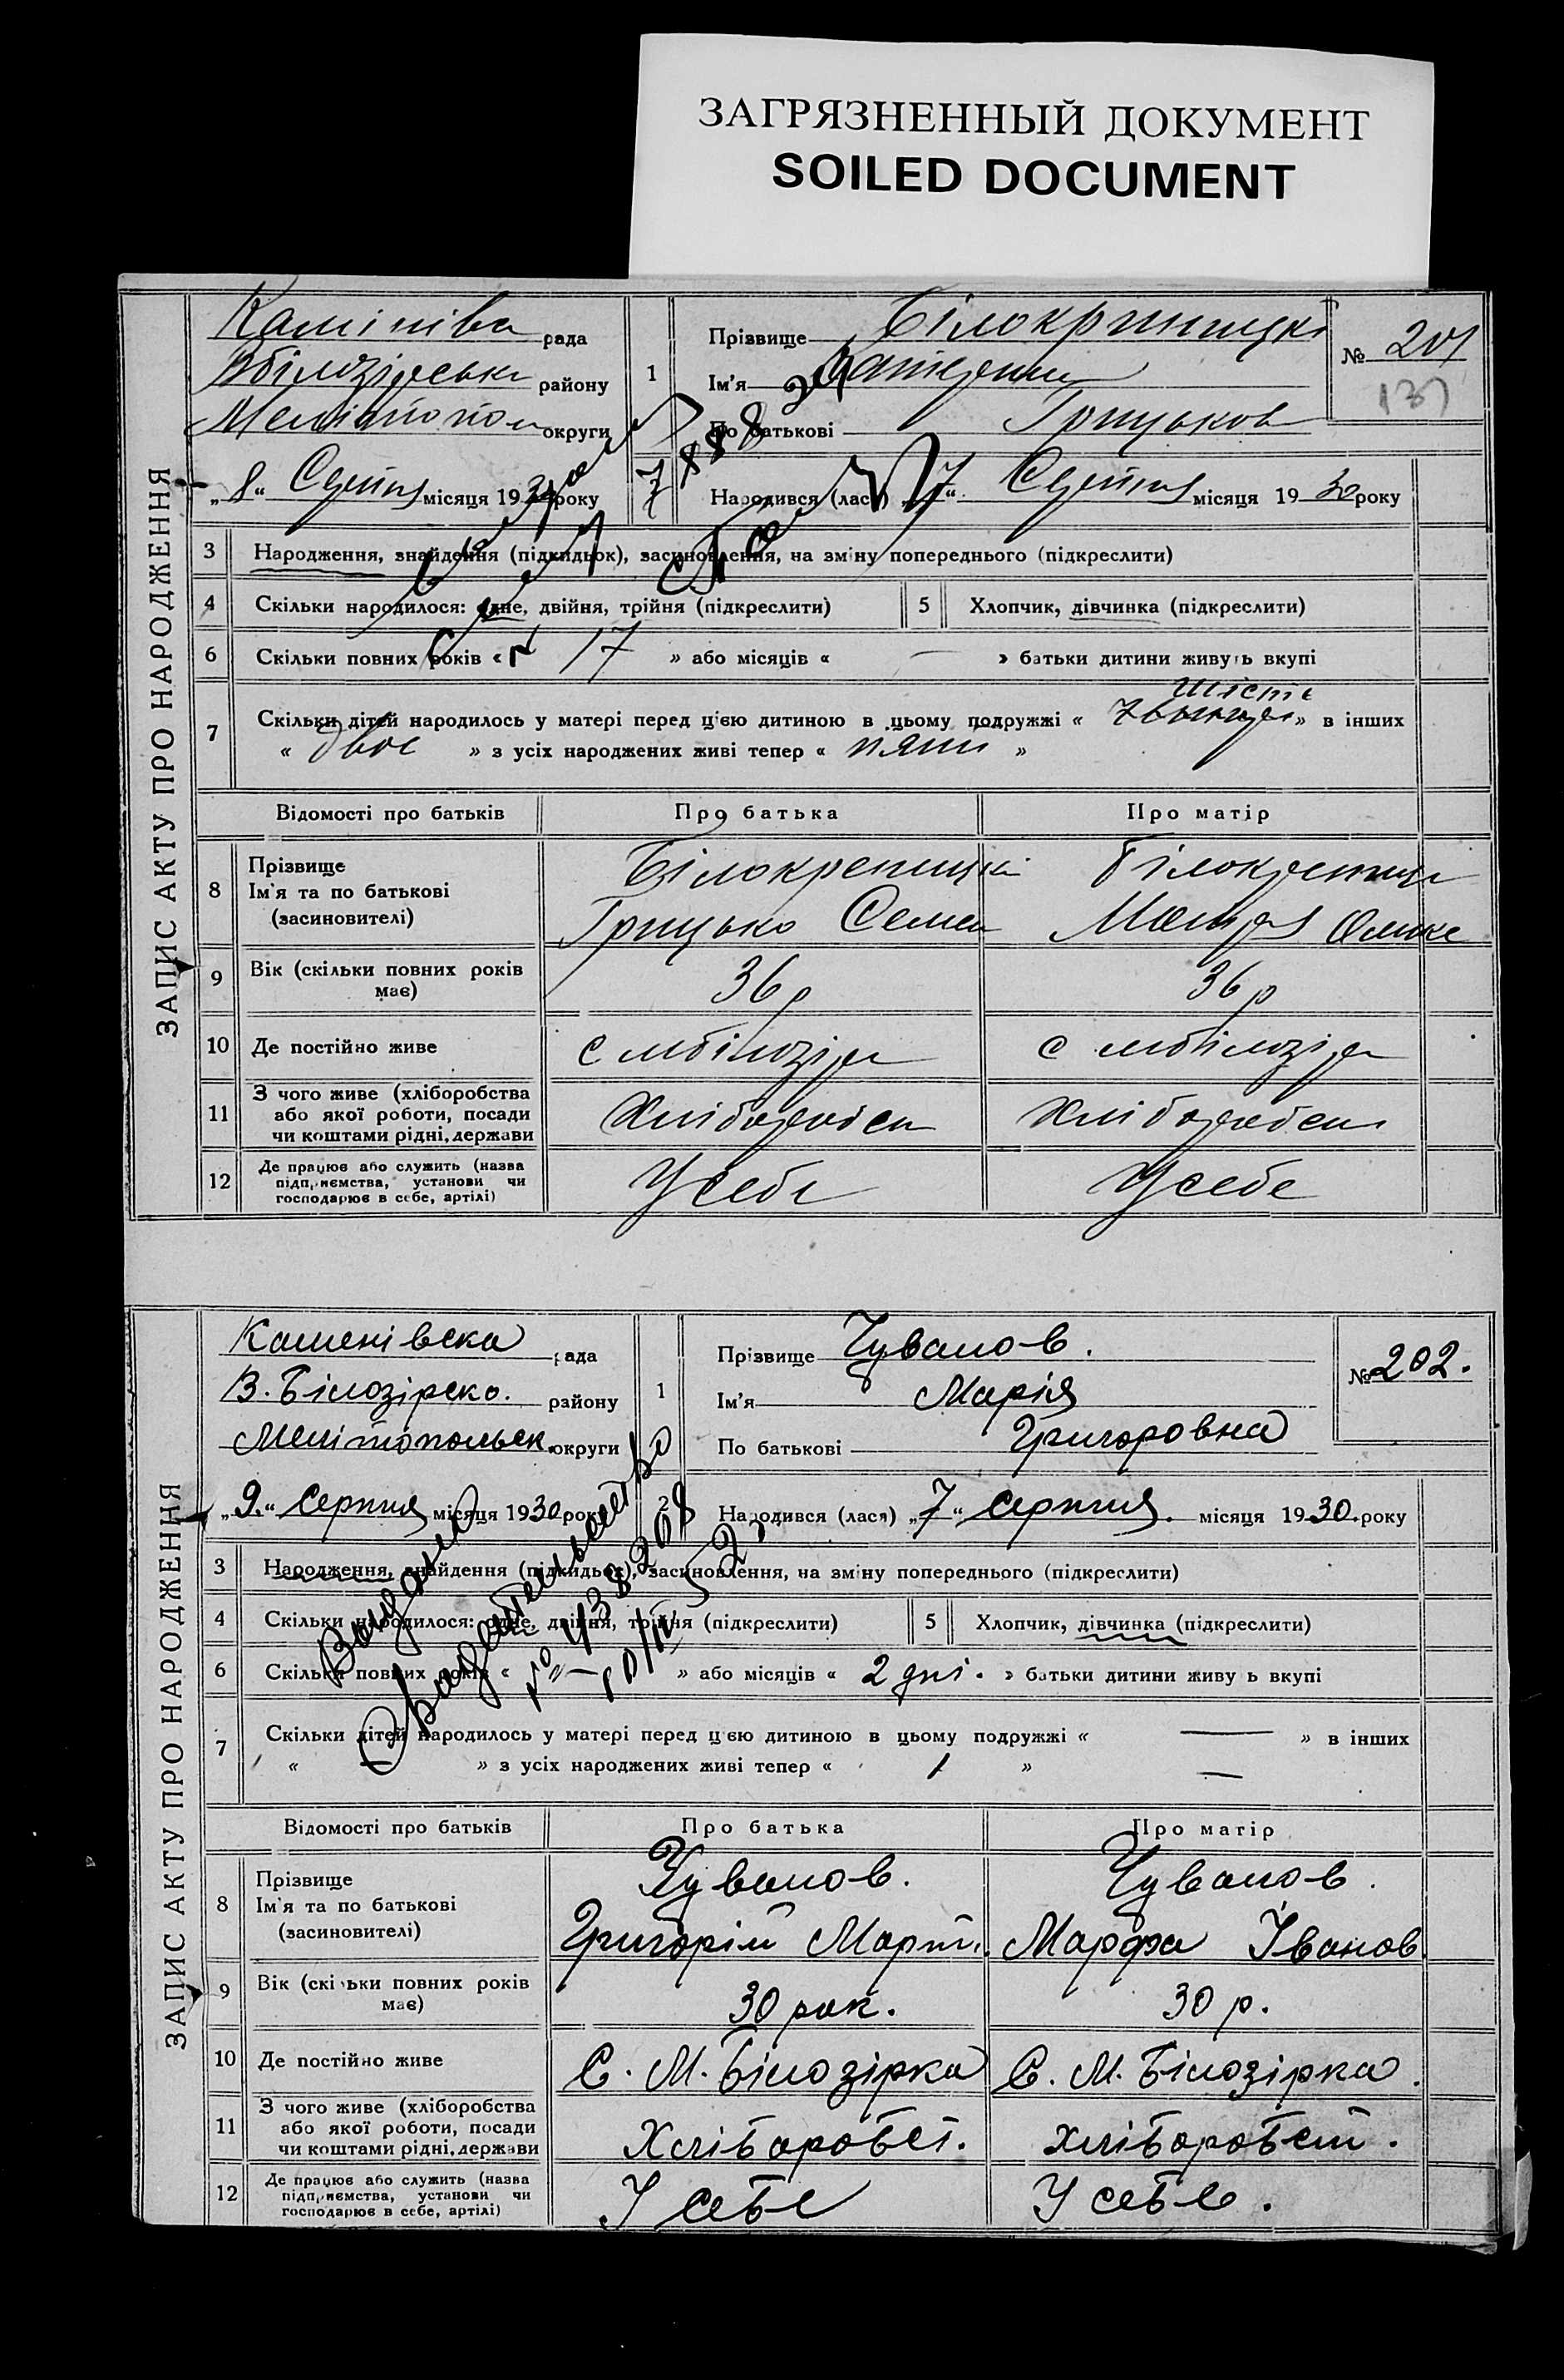 ЗАГРЯЗНЕННЫЙ ДОКУМЕНТ
SOILED DOCUMENT
ЗАПИС АКТУ ПРО НАРОДЖЕННЯ
рада
району
Мелітопол округи
„8“ Серпня місяця 1930 року
1
Прізвище Білокриницкі
Ім'я Катерина
По батькові Грицьков
№ 201
137
Народився (лася) „7“ Серпня місяця 1930 року
3 Народження, знайдення (підкидьок), засиновлення, на зміну попереднього (підкреслити)
4 Скільки народилося: одне, двійня, трійня (підкреслити) 5 Хлопчик, дівчинка (підкреслити)
6 Скільки повних років « 17 » або місяців « — » батьки дитини живуть вкупі
шість
7 Скільки дітей народилось у матері перед цією дитиною в цьому подружжі « » в інших
« двоє » з усіх народжених живі тепер « пять »
Відомості про батьків Про батька Про матір
8 Прізвище
Ім'я та по батькові
(засиновителі)
Білокреницкі
Грицько Семен
Білокрениц
Мотря
9 Вік (скільки повних років має) 36 р 36 р
10 Де постійно живе с мбілозірка с мбілозірка
11 З чого живе (хліборобства
або якої роботи, посади
чи коштами рідні, держави
Хліборобсть Хліборобсть
12 Де працює або служить (назва
підприємства, установи чи
господарює в себе, артілі)
У себе У себе
ЗАПИС АКТУ ПРО НАРОДЖЕННЯ
Каменівска рада
В. Білозірско. району
Мелітопольск. округи
„9.“ серпня місяця 1930 року
1
Прізвище Чуванов.
Ім'я Марія
По батькові Григоровна
№ 202.
2 Народився (лася) „7“ серпня. місяця 1930. року
Выдано
3 Народження, знайдення (підкидьок), засиновлення, на зміну попереднього (підкреслити)
4 Скільки народилося: одне, двійня, трійня (підкреслити) 5 Хлопчик, дівчинка (підкреслити)
6 Скільки повних років « — » або місяців « 2 дні. » батьки дитини живуть вкупі
7 Скільки дітей народилось у матері перед цією дитиною в цьому подружжі « — » в інших
« » з усіх народжених живі тепер « 1 » —
Відомості про батьків Про батька Про матір
8 Прізвище
Ім'я та по батькові
(засиновителі)
Чуванов. Чуванов.
Григорій Март. Марфа Іванов
9 Вік (скільки повних років має) 30 рок. 30 р.
10 Де постійно живе С. М. Білозірка С. М. Білозірка.
11 З чого живе (хліборобства
або якої роботи, посади
чи коштами рідні, держави
Хліборобст. хліборобст.
12 Де працює або служить (назва
підприємства, установи чи
господарює в себе, артілі)
У себе У себе.